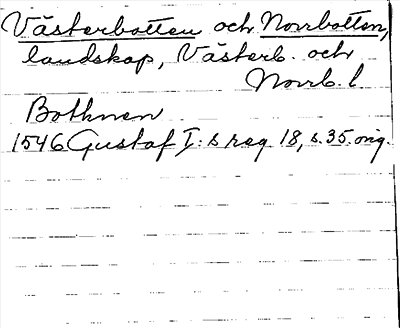 Västerbotten och Norrbotten,
landskap, Västerb. och
Norrb. l.
Bothnen
1546 Gustaf I:s reg. 18, s. 35. orig.